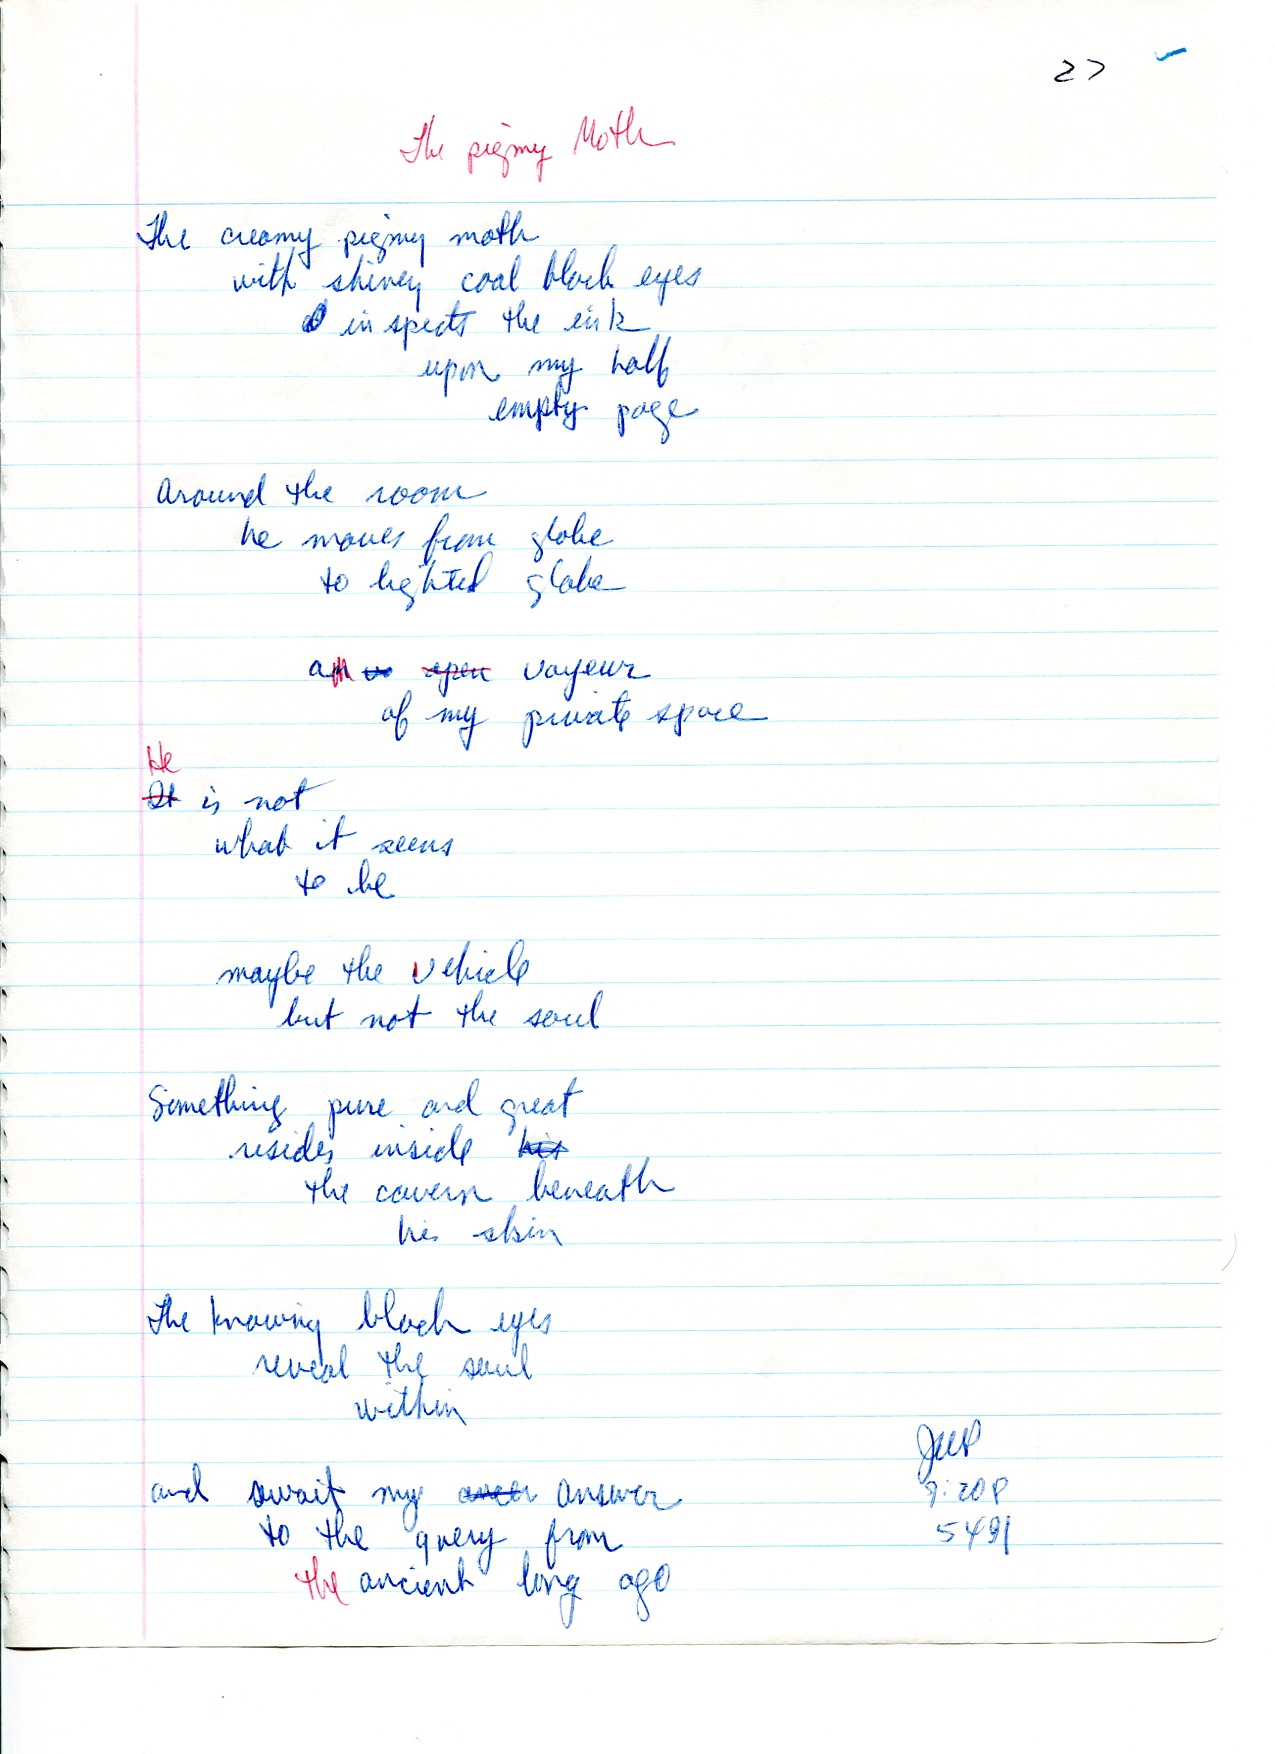 27
The pigmy Moth
The creamy pigmy moth
with shiney coal black eyes
inspects the ink
upon my half
empty page
Around the room
he moves from globe
to lighted globe
a open voyeur
of my private space
He
It is not
what it seems
to be
maybe the vehicle
but not the soul
Something pure and great
resides inside his
the cavern beneath
his skin
The knowing black eyes
reveal the soul
within
and await my answer
to the query from
the ancient long ago
9:20P
5491